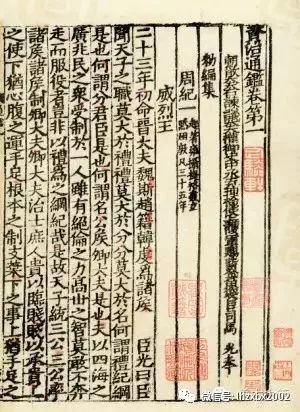 資治通鑑卷第一
朝散大夫右諫議大夫權御史中丞充理檢使上護軍賜紫金魚袋臣司馬 光奉
勑編集
周紀一 起著雍攝提格盡玄黓困敦凡三十五年
威烈王
二十三年初命晉大夫魏斯趙籍韓虔爲諸侯 臣光曰臣
聞天子之職莫大於禮禮莫大於分分莫大於名何謂禮紀綱
是也何謂分君臣是也何謂名公侯卿大夫是也夫以四海之
廣兆民之衆受制於一人雖有絶倫之力髙世之智莫敢不奔
走而服役者豈非以禮爲之綱紀哉是故天子統三公三公率
諸侯諸侯制卿大夫卿大夫治士庶人貴以臨賤賤以承貴上
之使下猶心腹之運手足根本之制支葉下之事上猶手足之
微信号: lhzxbx2002